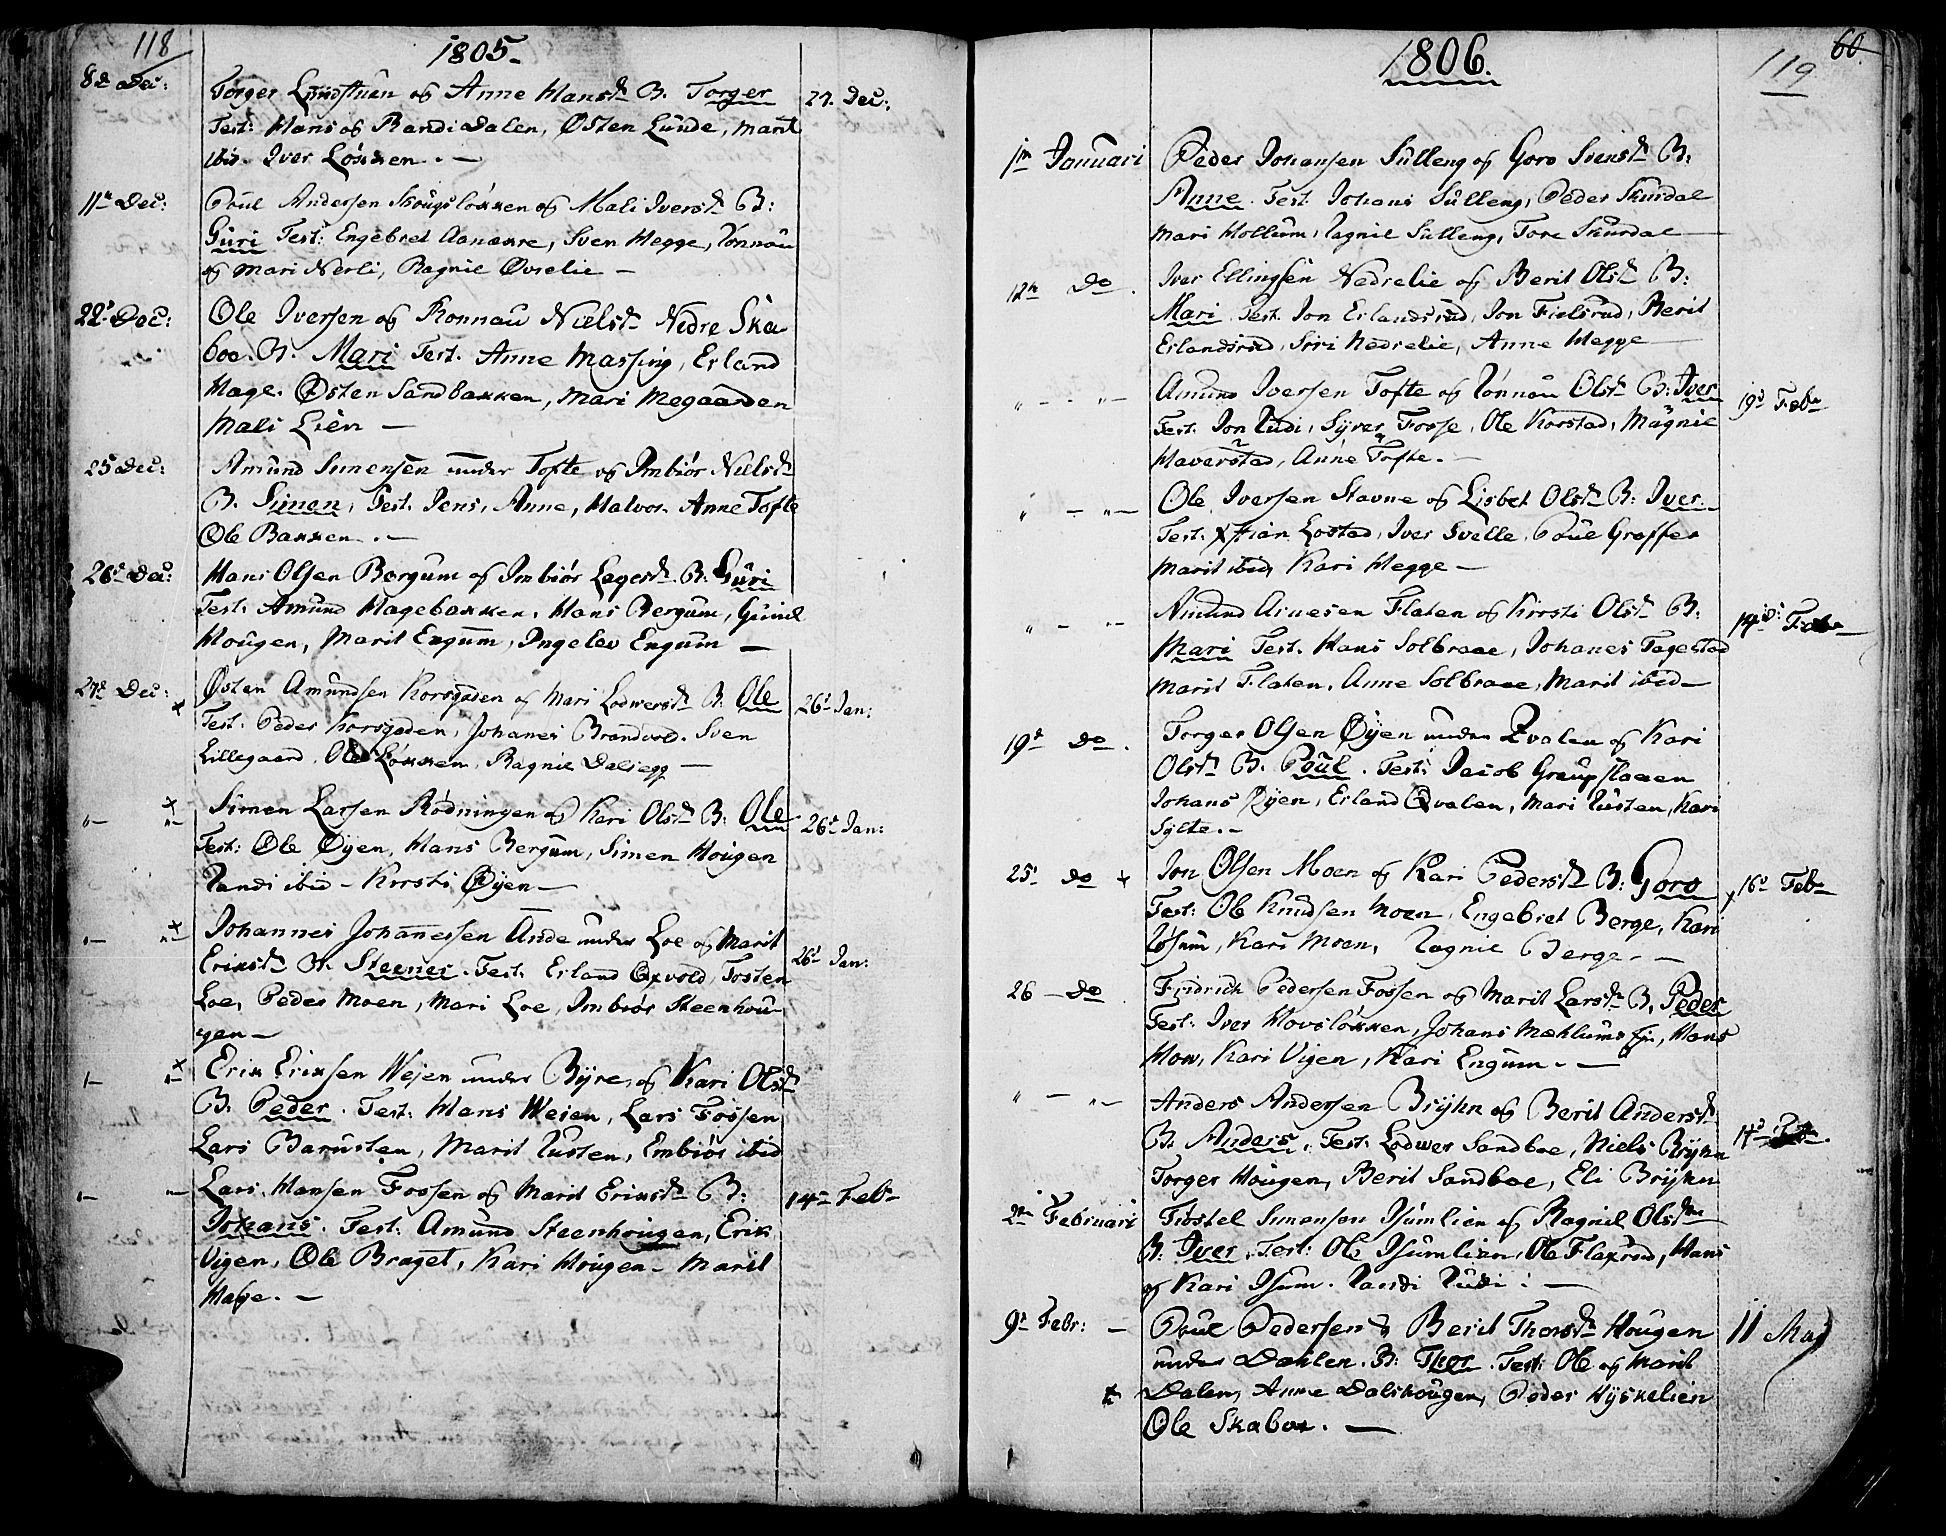 118
1805.
8d Dec:
Torger Lundstuen og Anne Hansd. B. Torger
27. Dec:
Test: Hans og Randi Dalen, Østen Lunde, Marit
ibid. Iver Løkken. —
11te Dec:
Poul Andersen Skougsløkken og Mali Iversd. B:
Guri Test: Engebret Aanekre, Sven Hegge, Rønnau
og Mari Nerli, Ragnil Øvrelie —
22d Dec:
Ole Iversen og Ronnau Nielsd. Nedre Ska
boe B. Mari Test. Anne Massing, Erland
Hage. Østen Sandbakken, Mari Megaarden
Mali Lien —
25 Dec:
Amund Simensen under Tofte og Imbiør Nielsd.
B. Simen, Test. Jens, Anne, Halvor. Anne Tofte
Ole Bakken. —
26d Dec:
Hans Olsen Borgum og Imbiør Lagesd. B. Guri
Test: Amund Hagebakken, Hans Bergum, Gunil
Hougen, Marit Engum, Ingelev Engum —
27d Dec: x
Østen Amundsen Korsgaden og Mari Lodwersd. B. Ole
26d Jan:
Test. Peder Korsgaden, Johanes Brandvold. Sven
Lillegaard, Ole Løkken, Ragnil Dalsegg —
"— x "—
Simen Larsen Rødningen og Kari Olsd. B: Ole
26d Jan:
Test: Ole Øyen, Hans Bergum, Simen Hougen
Randi ibid — Kirsti Øyen —
"— x "—
Johannes Johanessen Ande under Loe og Marit
26d Jan:
Eriksd. B. Steener. Test: Erland Qvvold, Tosten
Loe, Peder Moen, Mari Loe, Imbiør Steenhou-
gen —
"— x "—
Erik Eriksen Wejen under Byre, og Kari Olsd.
B. Peder. Test: Hans Weien, Lars Fossen
Lars Barusten, Marit Rusten, Embiør ibid
"— "—
Lars Hansen Fossen og Marit Eriksd. B:
14d Feb.
Johans. Test: Amund Steenhougen, Erik
Vigen, Ole Braget, Kari Hougen — Marit
Hage. —
1806.
119
60.
1te Januari
Peder Johansen Sulleng og Goro Svensd. B:
Anne. Test. Johans Sulleng, Peder Skurdal
Mari Hollum, Ragnil Sulleng, Tore Skurdal
12te Do.
Iver Ellingsen Nedrelie og Berit Olsd. B:
Mari. Test. Jon Erlandsrud, Jon Fielsrud, Berit
Erlandsrud, Siri Nedrelie, Anne Hegge
" — "—
Amund Iversen Tofte og Rønnau Olsd. B: Iver
19d Feb.
Test. Jon Rudi, Syver Fosse, Ole Korstad, Magnil
Haverstad, Anne Tofte. —
" — "—
Ole Iversen Stavne og Lisbet Olsd. B: Iver
Test: Xstian Lostad, Iver Svelle, Poul Graffer
Marit ibid, Kari Hegge —
" — "—
Amund Arnesen Flaten og Kirsti Olsd. B.
14d: Feb.
Mari Test. Hans Solbraae, Johanes Fagestad
Marit Flaten, Anne Solbraae, Marit ibid —
19d Do.
Torger Olsen Øyen under Qvalen og Kari
Olsd. B. Poul. Test. Jacob Graupslaaen
Johans Øyen, Erland Qvalen, Mari Rusten, Kari
Sylte. —
25d Do x
Jon Olsen Moen og Kari Pedersd. B: Goro
16d Feb.
Test: Ole Knudsen Moen, Engebret Berge, Kari
Løsum, Kari Moen, Ragnil Berge. —
26 — Do.
Fridrich Pedersen Fossen og Marit Larsd. B. Peder
Test: Iver Hovsløkken, Johans Mæhlums, Hans
How, Kari Vigen, Kari Engum. —
" — "—
Anders Andersen Bryhn og Berit Andersd.
B. Anders. Test: Lodwer Sandboe, Niels Bryhn
14d Feb.
Torger Hougen, Berit Sandboe, Eli Bryhn
2den Februari
Tiøstel Simensen Isumlien og Ragnil Olsd.
B: Iver. Test: Ole Isumlien, Ole Flaxrud, Hans
og Kari Isum. Randi Rudi. —
9d Febr: —
Poul Pedersen & Berit Thorsd. Hougen
11 Maj
under Dahlen. B: Thor. Test: Ole og Marit
x
Dalen, Anne Dalshougen, Peder Hyskelien
Ole Skaboe. —